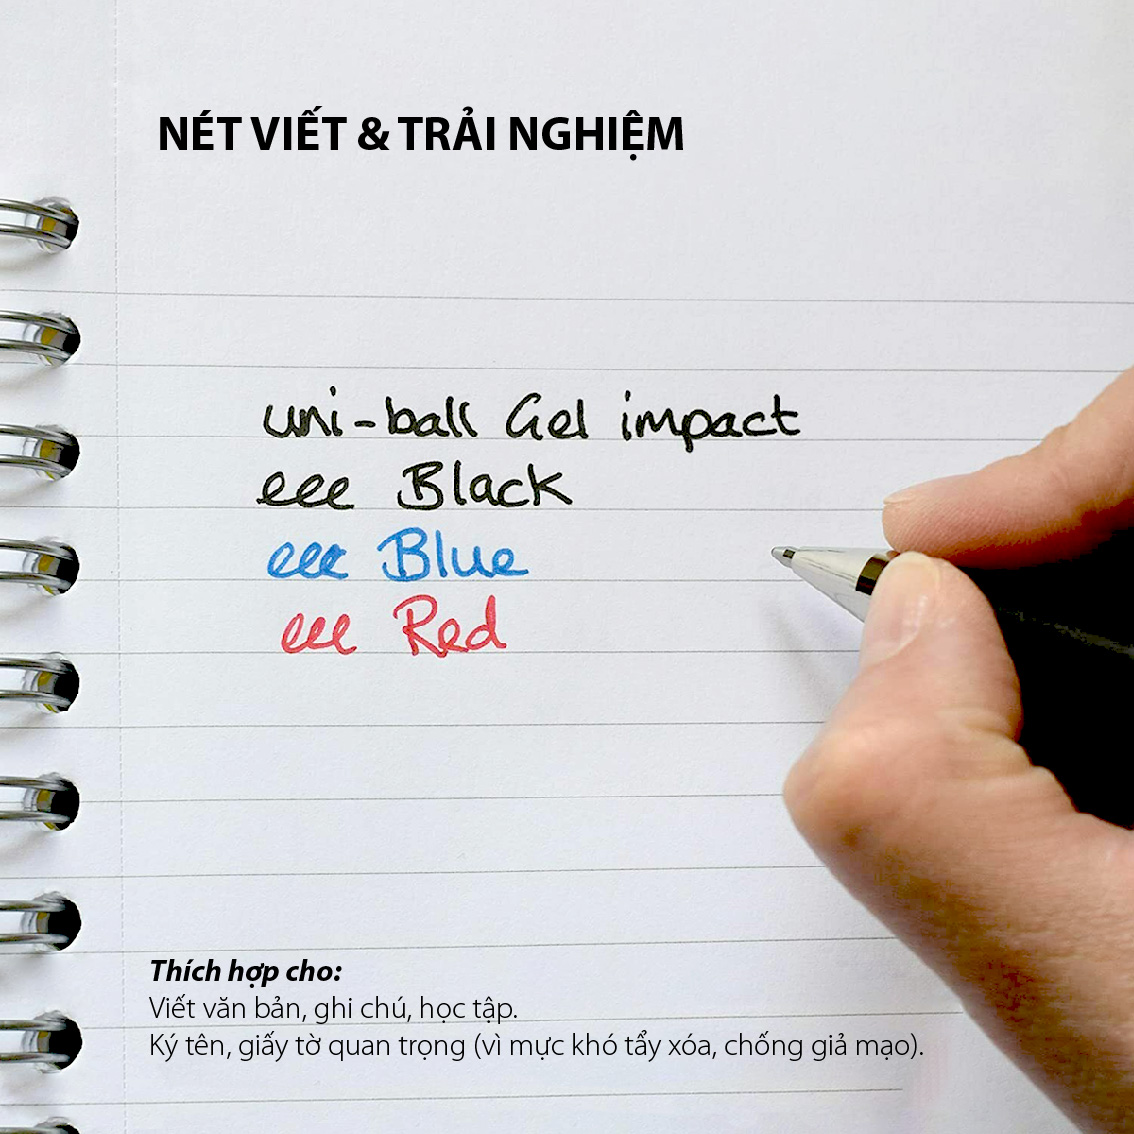 NÉT VIẾT & TRẢI NGHIỆM
uni-ball Gel impact
eee Black
eee Blue
eee Red
Thích hợp cho:
Viết văn bản, ghi chú, học tập.
Ký tên, giấy tờ quan trọng (vì mực khó tẩy xóa, chống giả mạo).